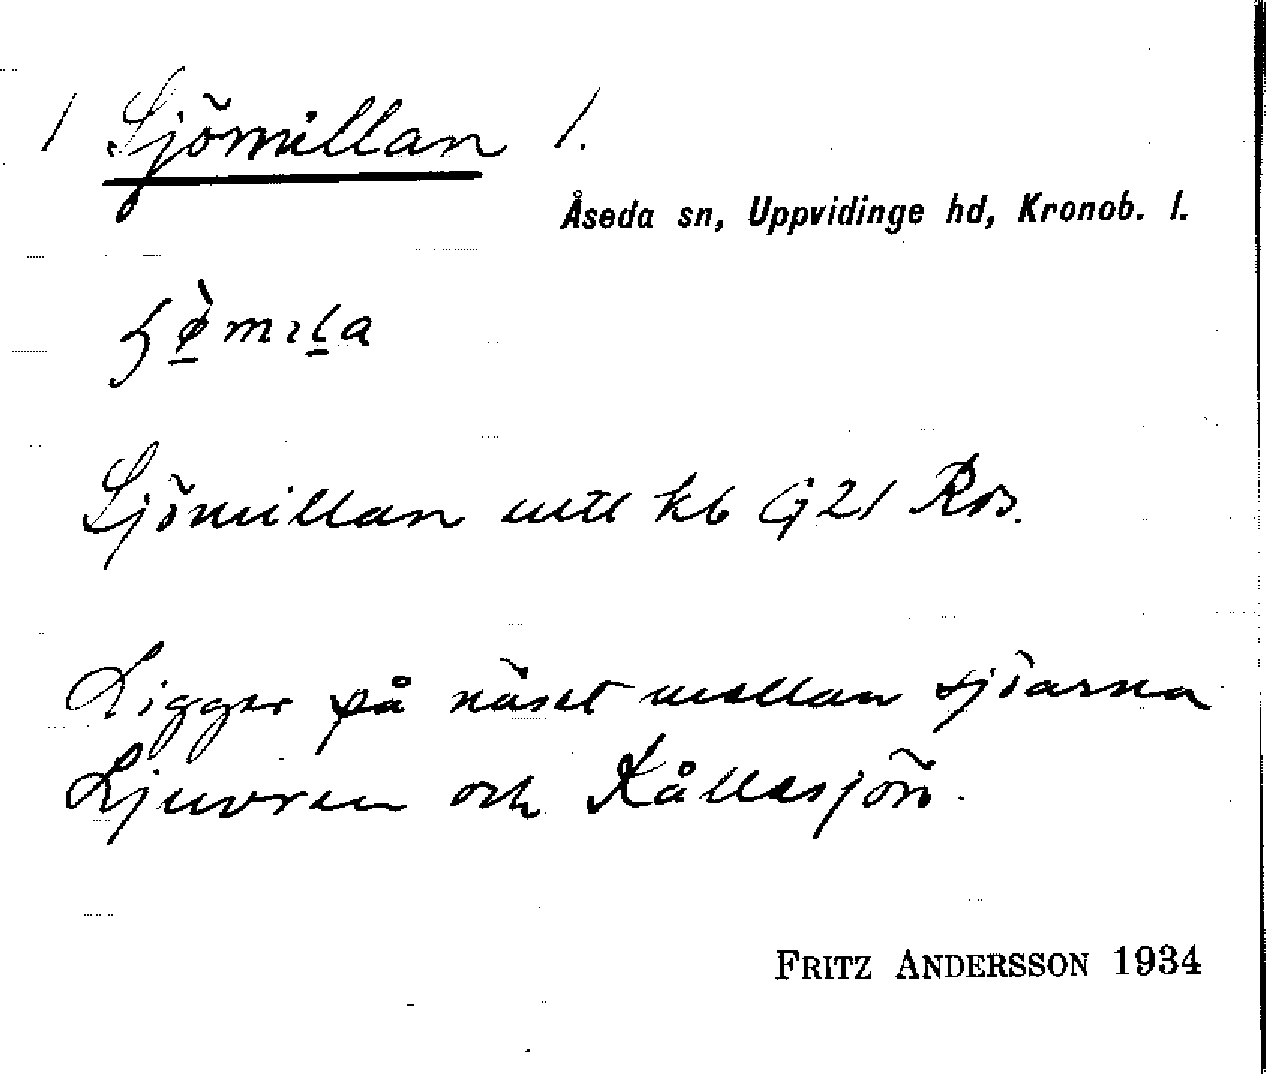 / Sjömillan /.
Åseda sn, Uppvidinge hd, Kronob. l.
Sjömillan uttl kb G21 Ros.
Ligger på näset mellan sjöarna
Ljuvren och Kållesjön.
FRITZ ANDERSSON 1934